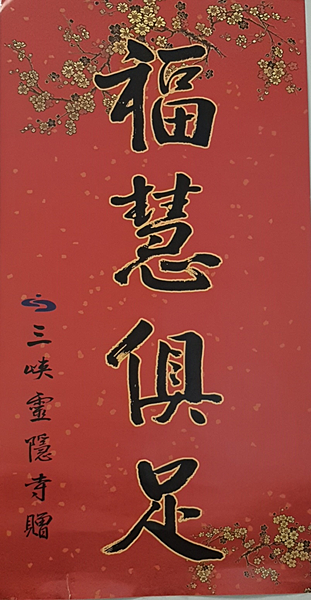 福慧俱足
三峽靈隱寺贈